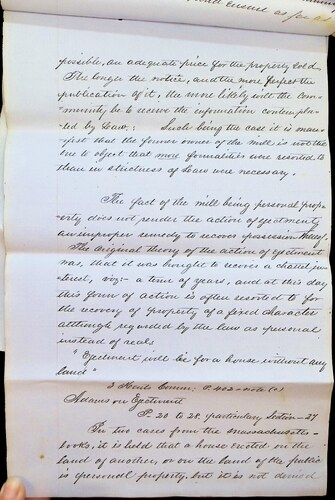 possible, an adequate price for the property sold.
The longer the notice, and the more perfect the
publication of it, the more likely will the com-
munity be to receive the information contempla-
ted by Law: Such being the case it is mani-
fest that the former owner of the mill is not the
one to object that more formalities were resorted to
than in strictness of Law were necessary.
The fact of the mill being personal prop-
erty does not render the action of ejectment
an improper remedy to recover possession thereof.
The original theory of the action of ejectment
was, that it was brought to recover a chattel in-
terest, viz:- a term of years, and at this day
this form of action is often resorted to for
the recovery of property of a fixed character
although regarded by the law as personal
instead of real:
"Ejectment will lie for a house without any
land"
2 Comm. P. 402 - note
Adams on Ejectment
P. 20 to 28. particularly Section - 27
In two cases from the Massachusetts
books, it is held that a house erected on the
land of another, or on the land of the public
is personal property, but it is not denied